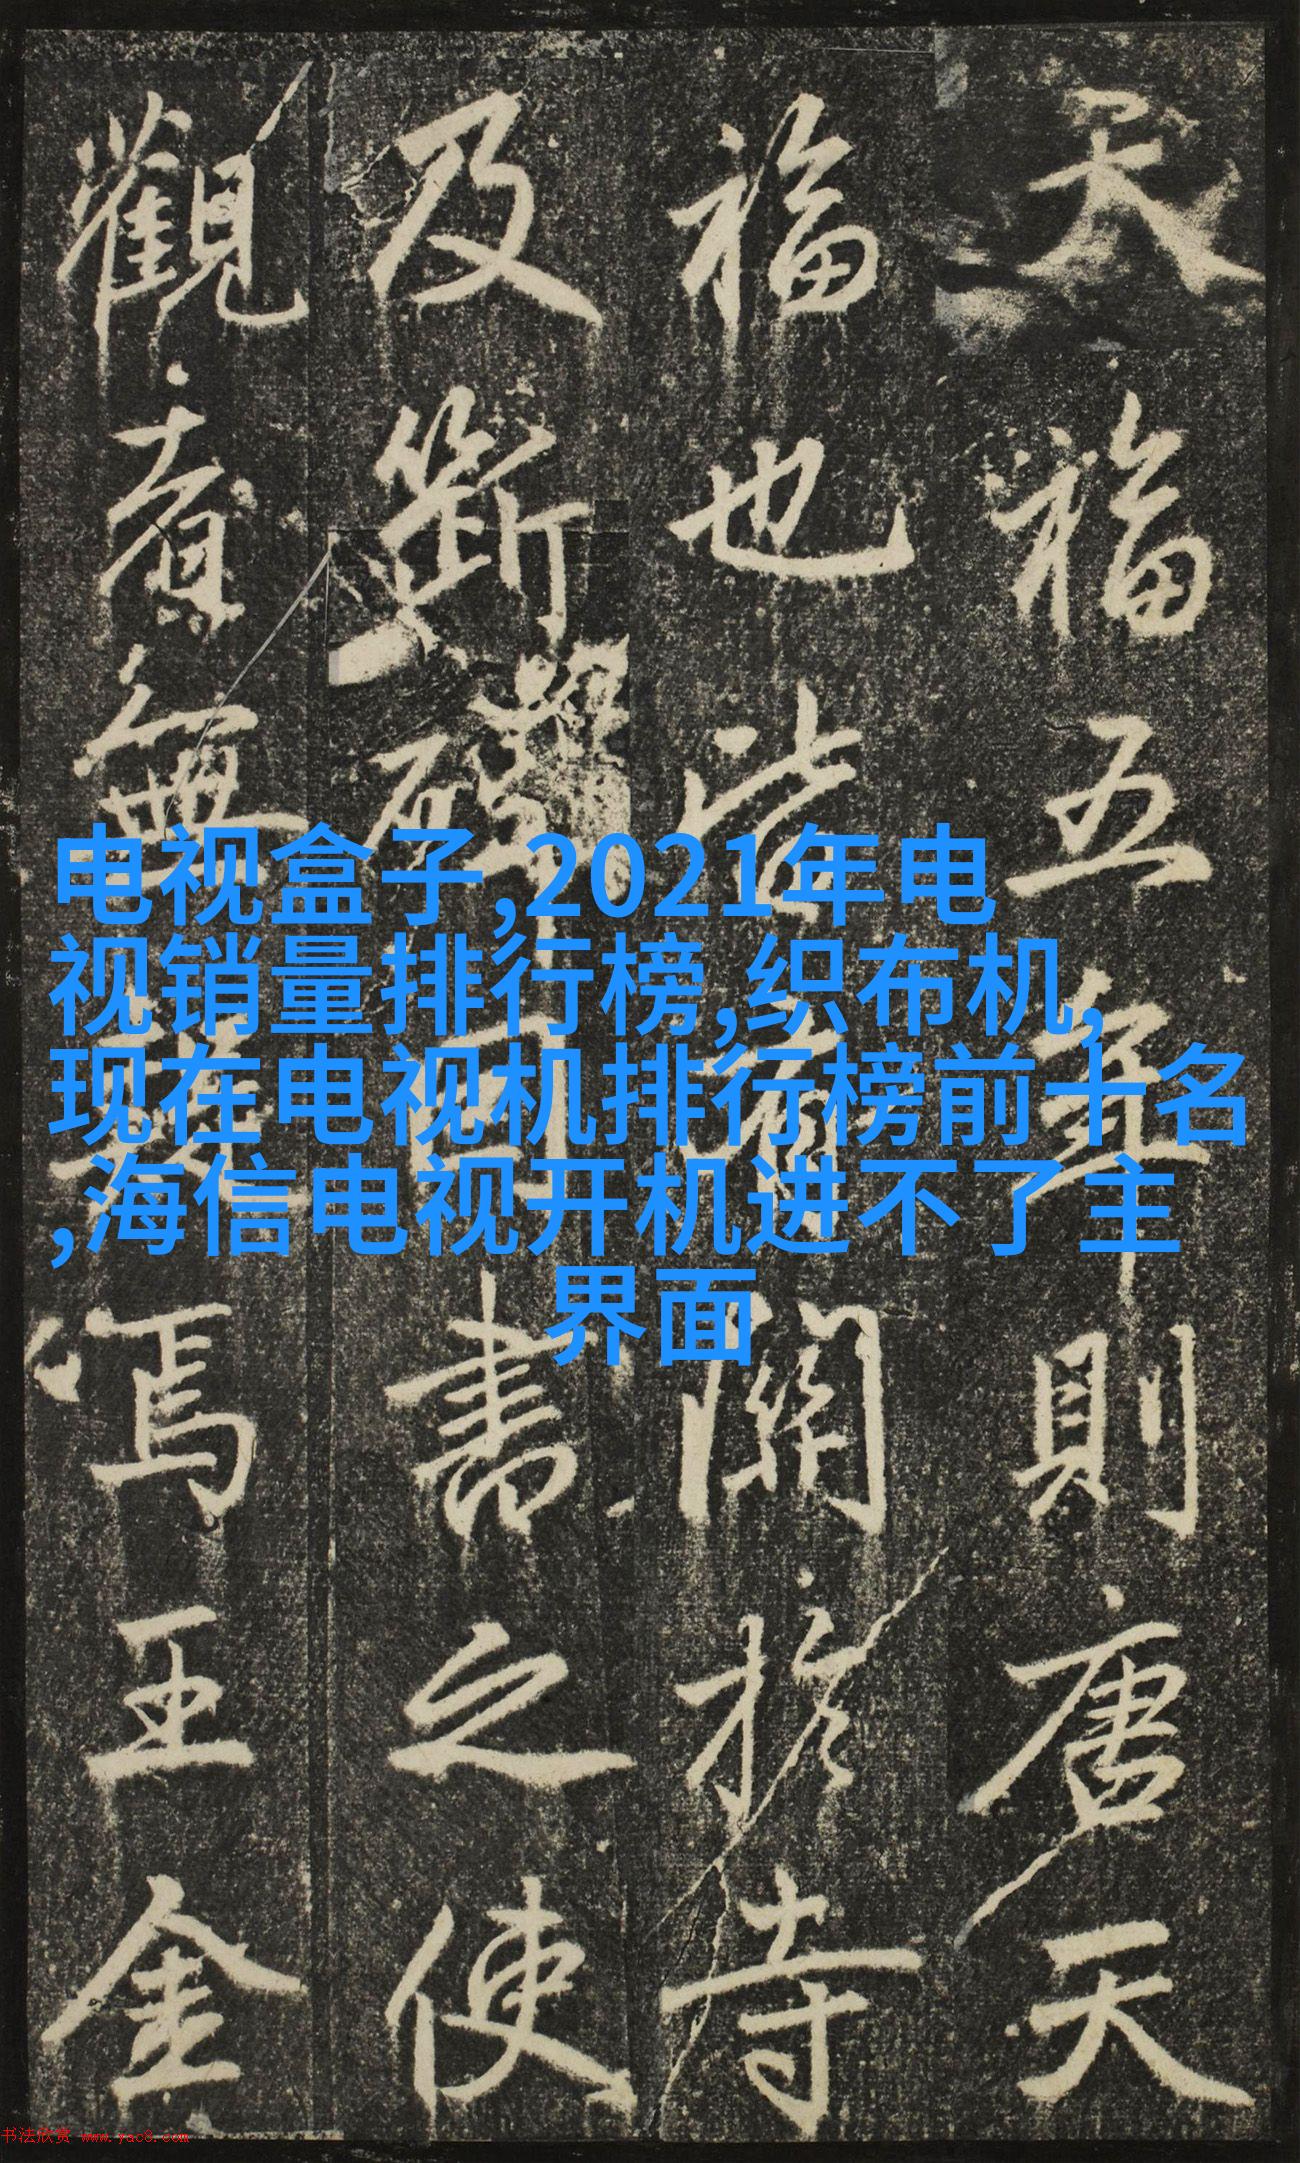 电视盒子,2021年电
视销量排行榜,织布机,
现在电视机排行榜前十名
,海信电视开机进不了主
界面
天福五年則唐天
福也皆有關於寺
及斷碑書之使
觀者無焉王金
书法欣赏 www.yac8.com